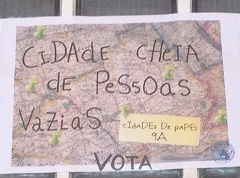 CIDAdE CHEIA
dE PESSOAS
VAZIAS -
CIdAdES DE PAPEL
9A
VOTA